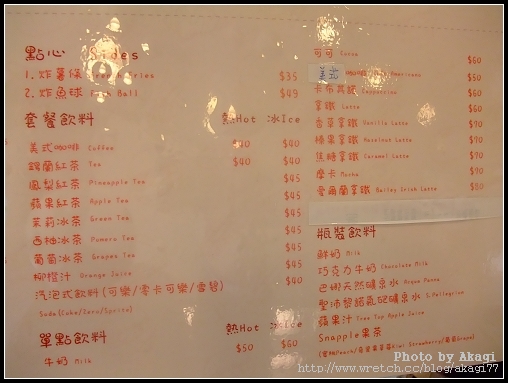 點心 Sides
1. 炸薯條 French Fries $35
2. 炸魚球 Fish Ball $49
套餐飲料 熱Hot 冰Ice
美式咖啡 Coffee $40 $40
錫蘭紅茶 Tea $40 $40
鳳梨紅茶 Pineapple Tea $45
蘋果紅茶 Apple Tea $45
茉莉冰茶 Green Tea $45
西柚冰茶 Pomero Tea $45
葡萄冰茶 Grapes Tea $45
柳橙汁 Orange Juice $45
汽泡式飲料(可樂/零卡可樂/雪碧) $40
Soda(Coke/Zero/Sprite)
單點飲料 熱Hot 冰Ice
牛奶 Milk $50 $60
可可 Cocoa $60
美式咖啡 Americano $50
卡布其諾 Cappuccino $60
拿鐵 Latte $60
香草拿鐵 Vanilla Latte $70
榛果拿鐵 Hazelnut Latte $70
焦糖拿鐵 Caramel Latte $70
摩卡 Mocha $70
愛爾蘭拿鐵 Bailey Irish Latte $80
瓶裝飲料
鮮奶 Milk
巧克力牛奶 Chocolate Milk
巴娜天然礦泉水 Acqua Panna
聖沛黎洛氣泡礦泉水 S.Pellegrino
蘋果汁 Tree Top Apple Juice
Snapple果茶
Photo by Akagi
http://www.wretch.cc/blog/akagi77